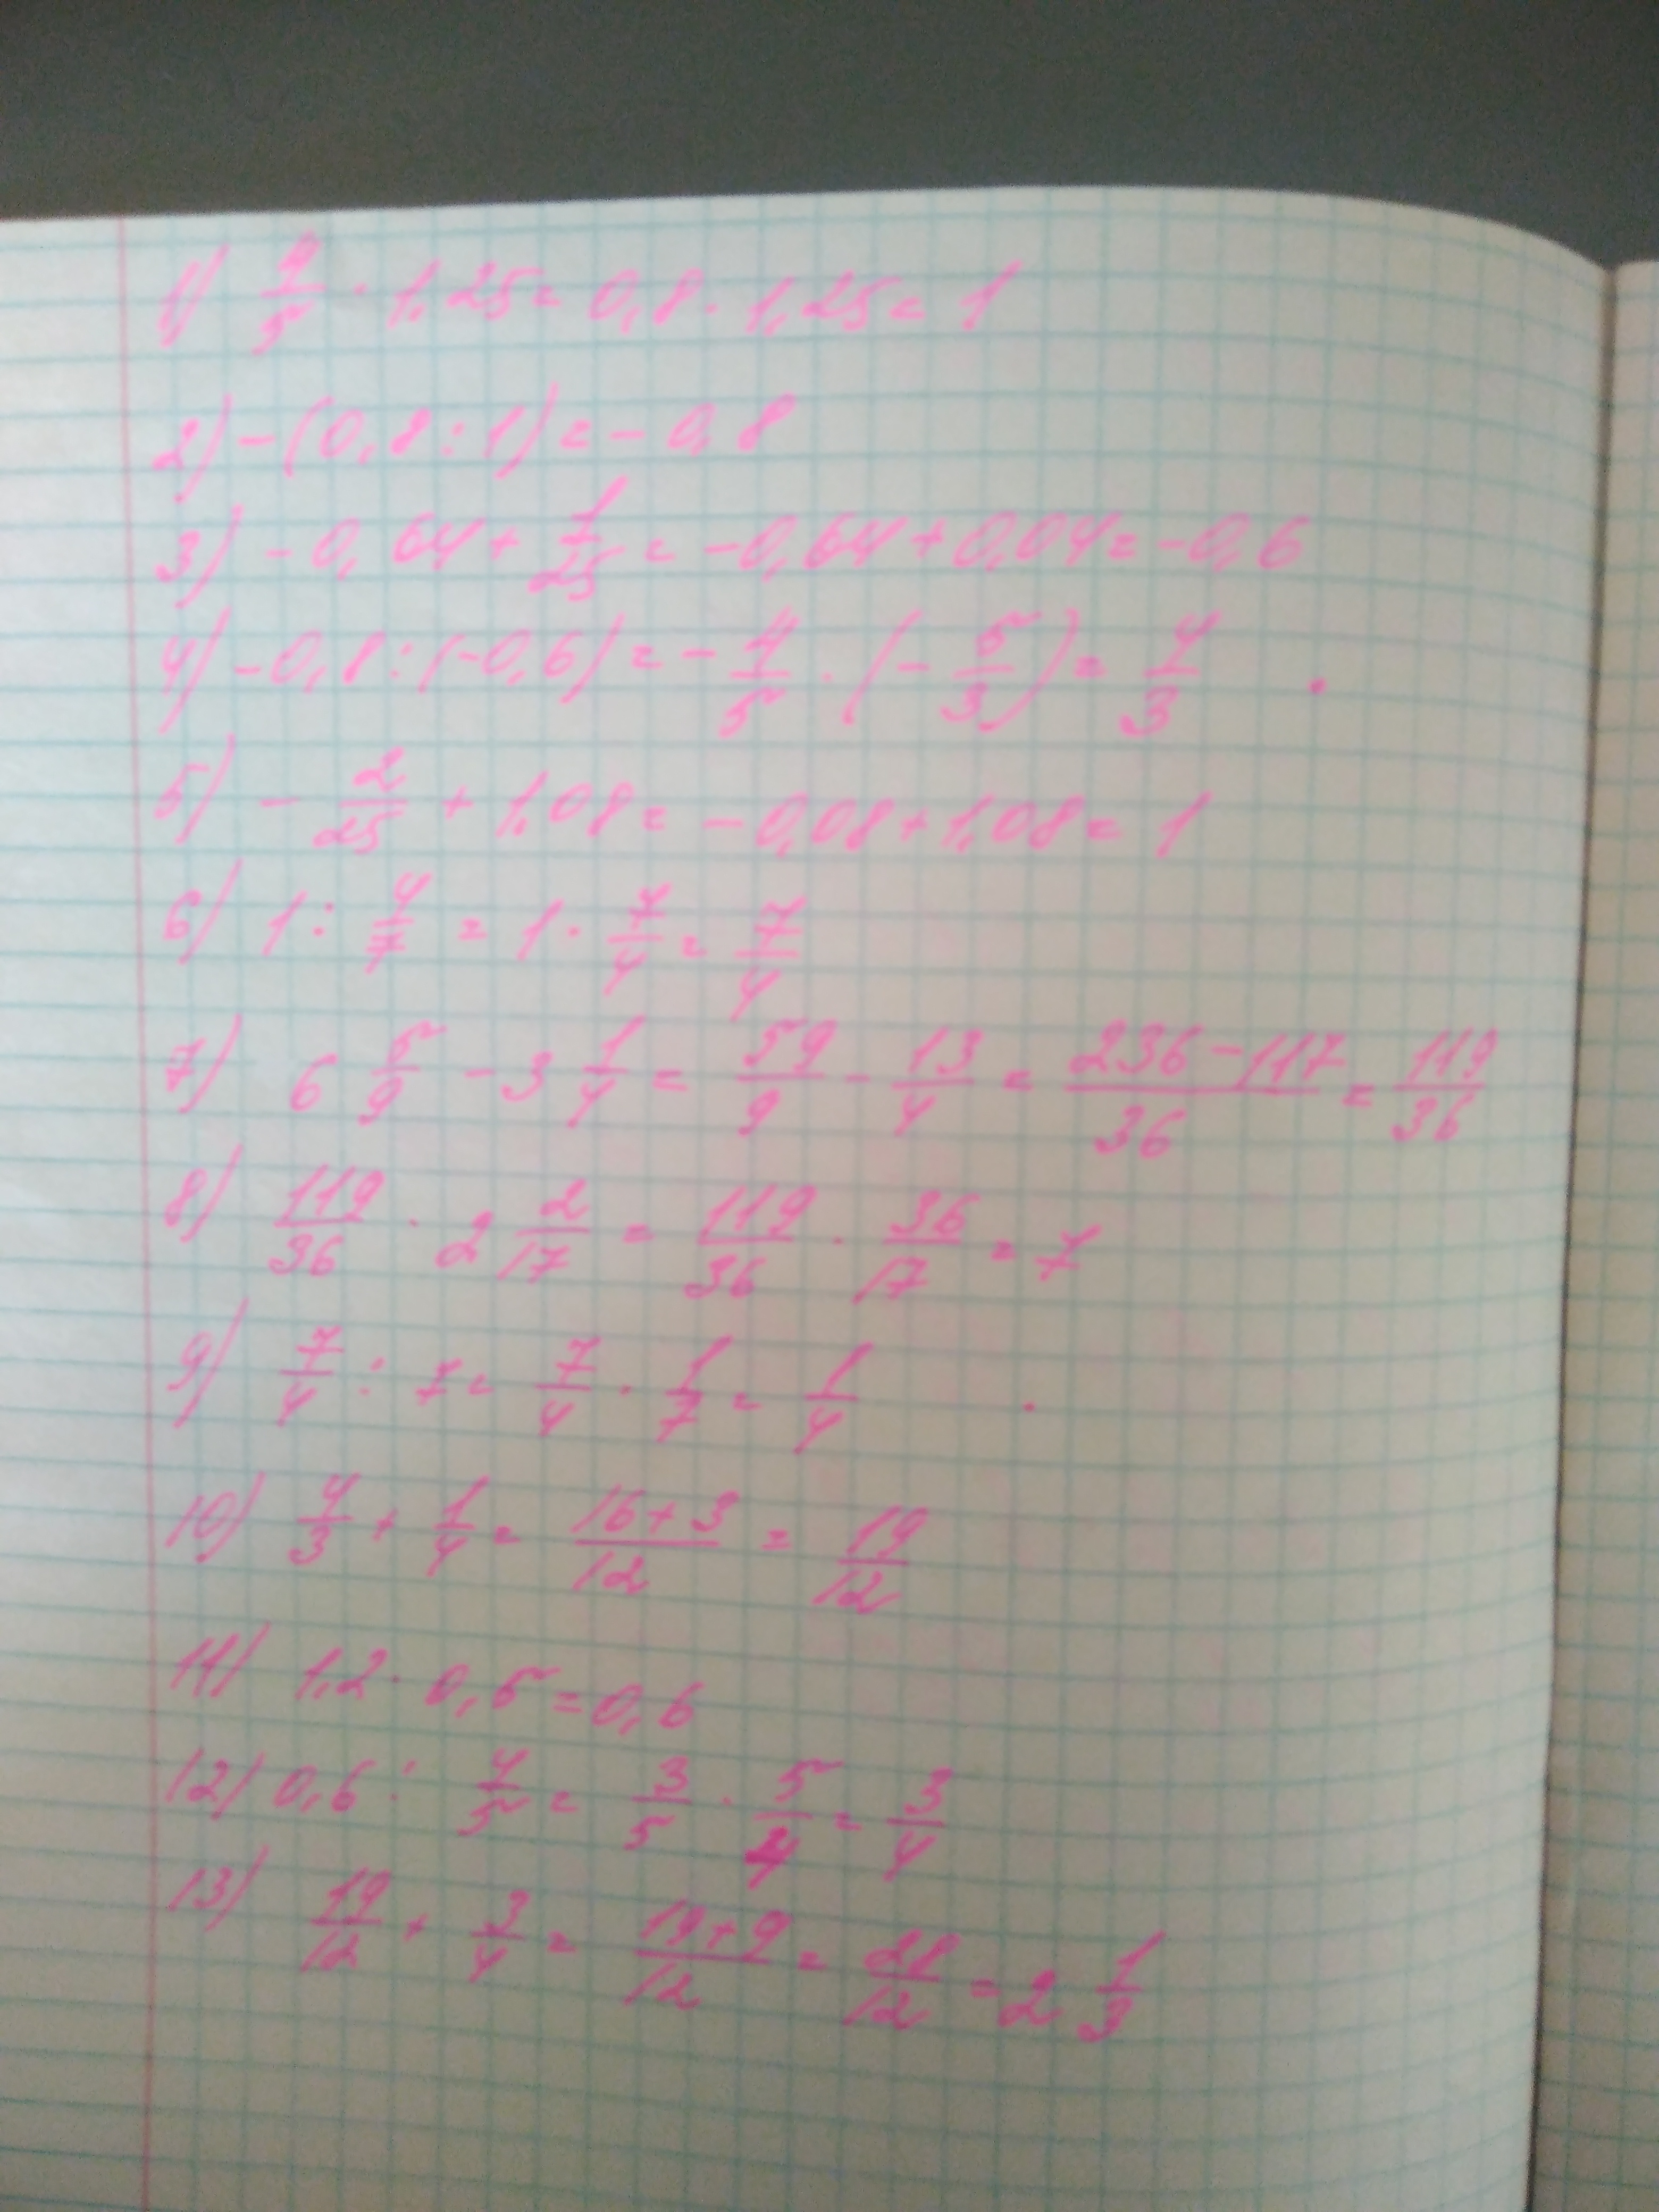 1) 4/5 · 1,25 = 0,8 · 1,25 = 1
2) -(0,8 : 1) = -0,8
3) -0,64 + 1/25 = -0,64 + 0,04 = -0,6
4) -0,8 : (-0,6) = -4/5 · (-5/3) = 4/3
5) -2/25 + 1,08 = -0,08 + 1,08 = 1
6) 1 : 4/7 = 1 · 7/4 = 7/4
7) 6 5/9 - 3 1/4 = 59/9 - 13/4 = (236 - 117)/36 = 119/36
8) 119/36 · 2 2/17 = 119/36 · 36/17 = 7
9) 7/4 : 7 = 7/4 · 1/7 = 1/4
10) 4/3 + 1/4 = (16 + 3)/12 = 19/12
11) 1,2 · 0,5 = 0,6
12) 0,6 : 4/5 = 3/5 · 5/4 = 3/4
13) 19/12 + 3/4 = (19 + 9)/12 = 28/12 = 2 1/3